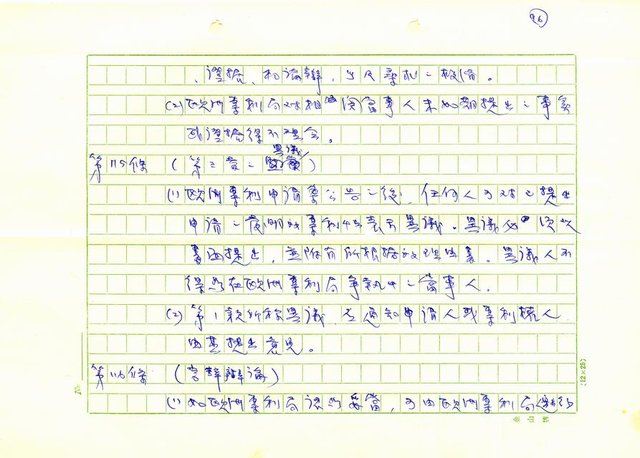 96
、證據、和論辯,
(2) 歐洲專利局對相關當事人未如期提出之事實
或證據得不理會。
第115條 (第三者之異議)
(1) 歐洲專利申請案公告之後,任何人可對已提出
申請之發明的專利性表示異議。異議必須以
書面提出,並附有所根據的理由書。異議人不
得為在歐洲專利局爭執中之當事人。
(2) 第1款所稱異議,應通知申請人或專利權人
由其提出意見。
第116條 (言辭辯論)
(1) 如歐洲專利局認為妥當,可由歐洲專利局
(12×25)